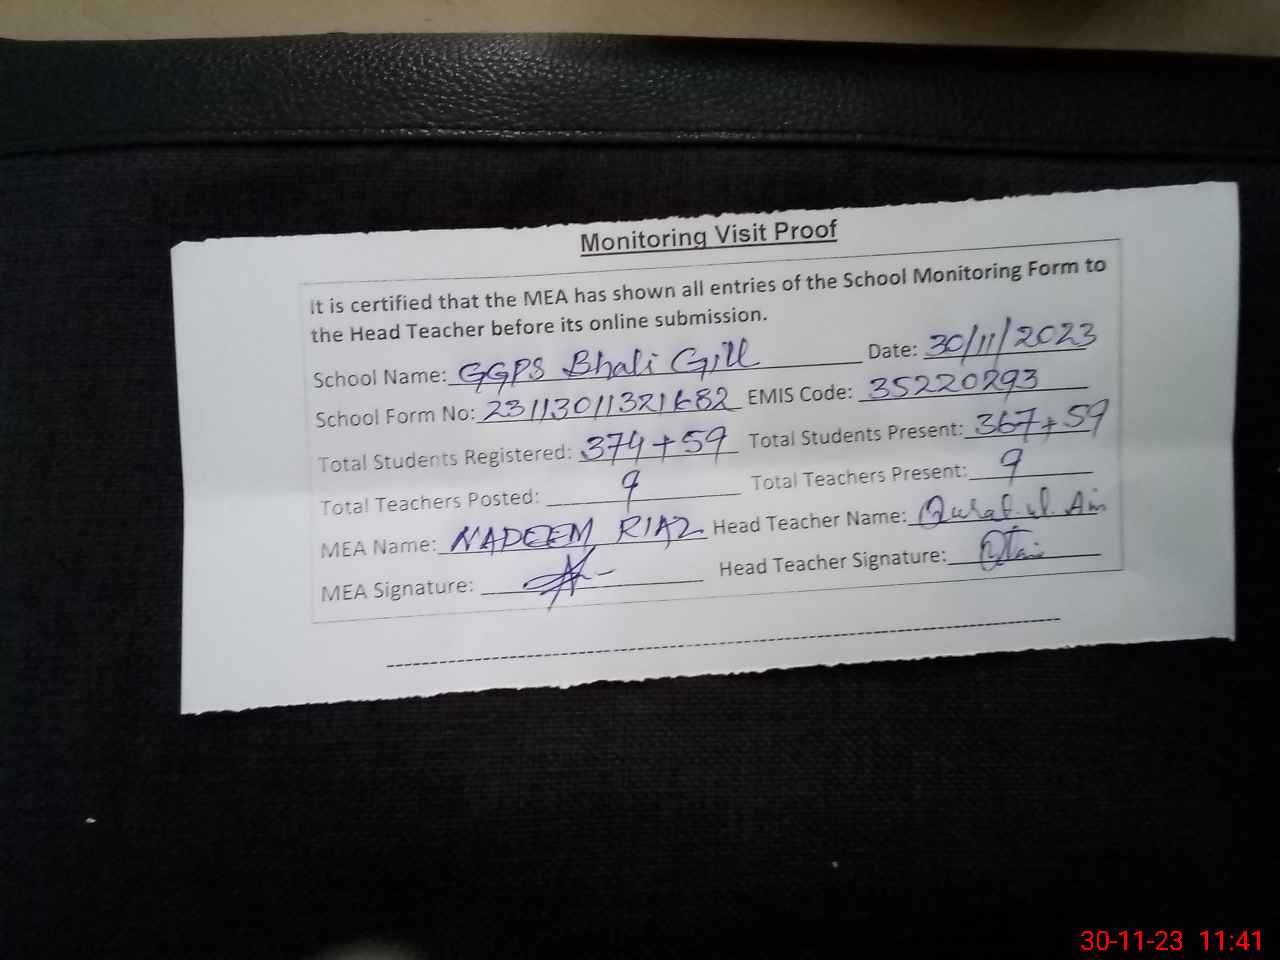 Monitoring Visit Proof
It is certified that the MEA has shown all entries of the School Monitoring Form to
the Head Teacher before its online submission.
School Name: GGPS Bhali Gill Date: 30/11/2023
School Form No: 23113011321682 EMIS Code: 35220293
Total Students Registered: 374+59 Total Students Present: 367+59
Total Teachers Posted: 9 Total Teachers Present: 9
MEA Name: NADEEM RIAZ Head Teacher Name:
MEA Signature: Head Teacher Signature:
30-11-23 11:41